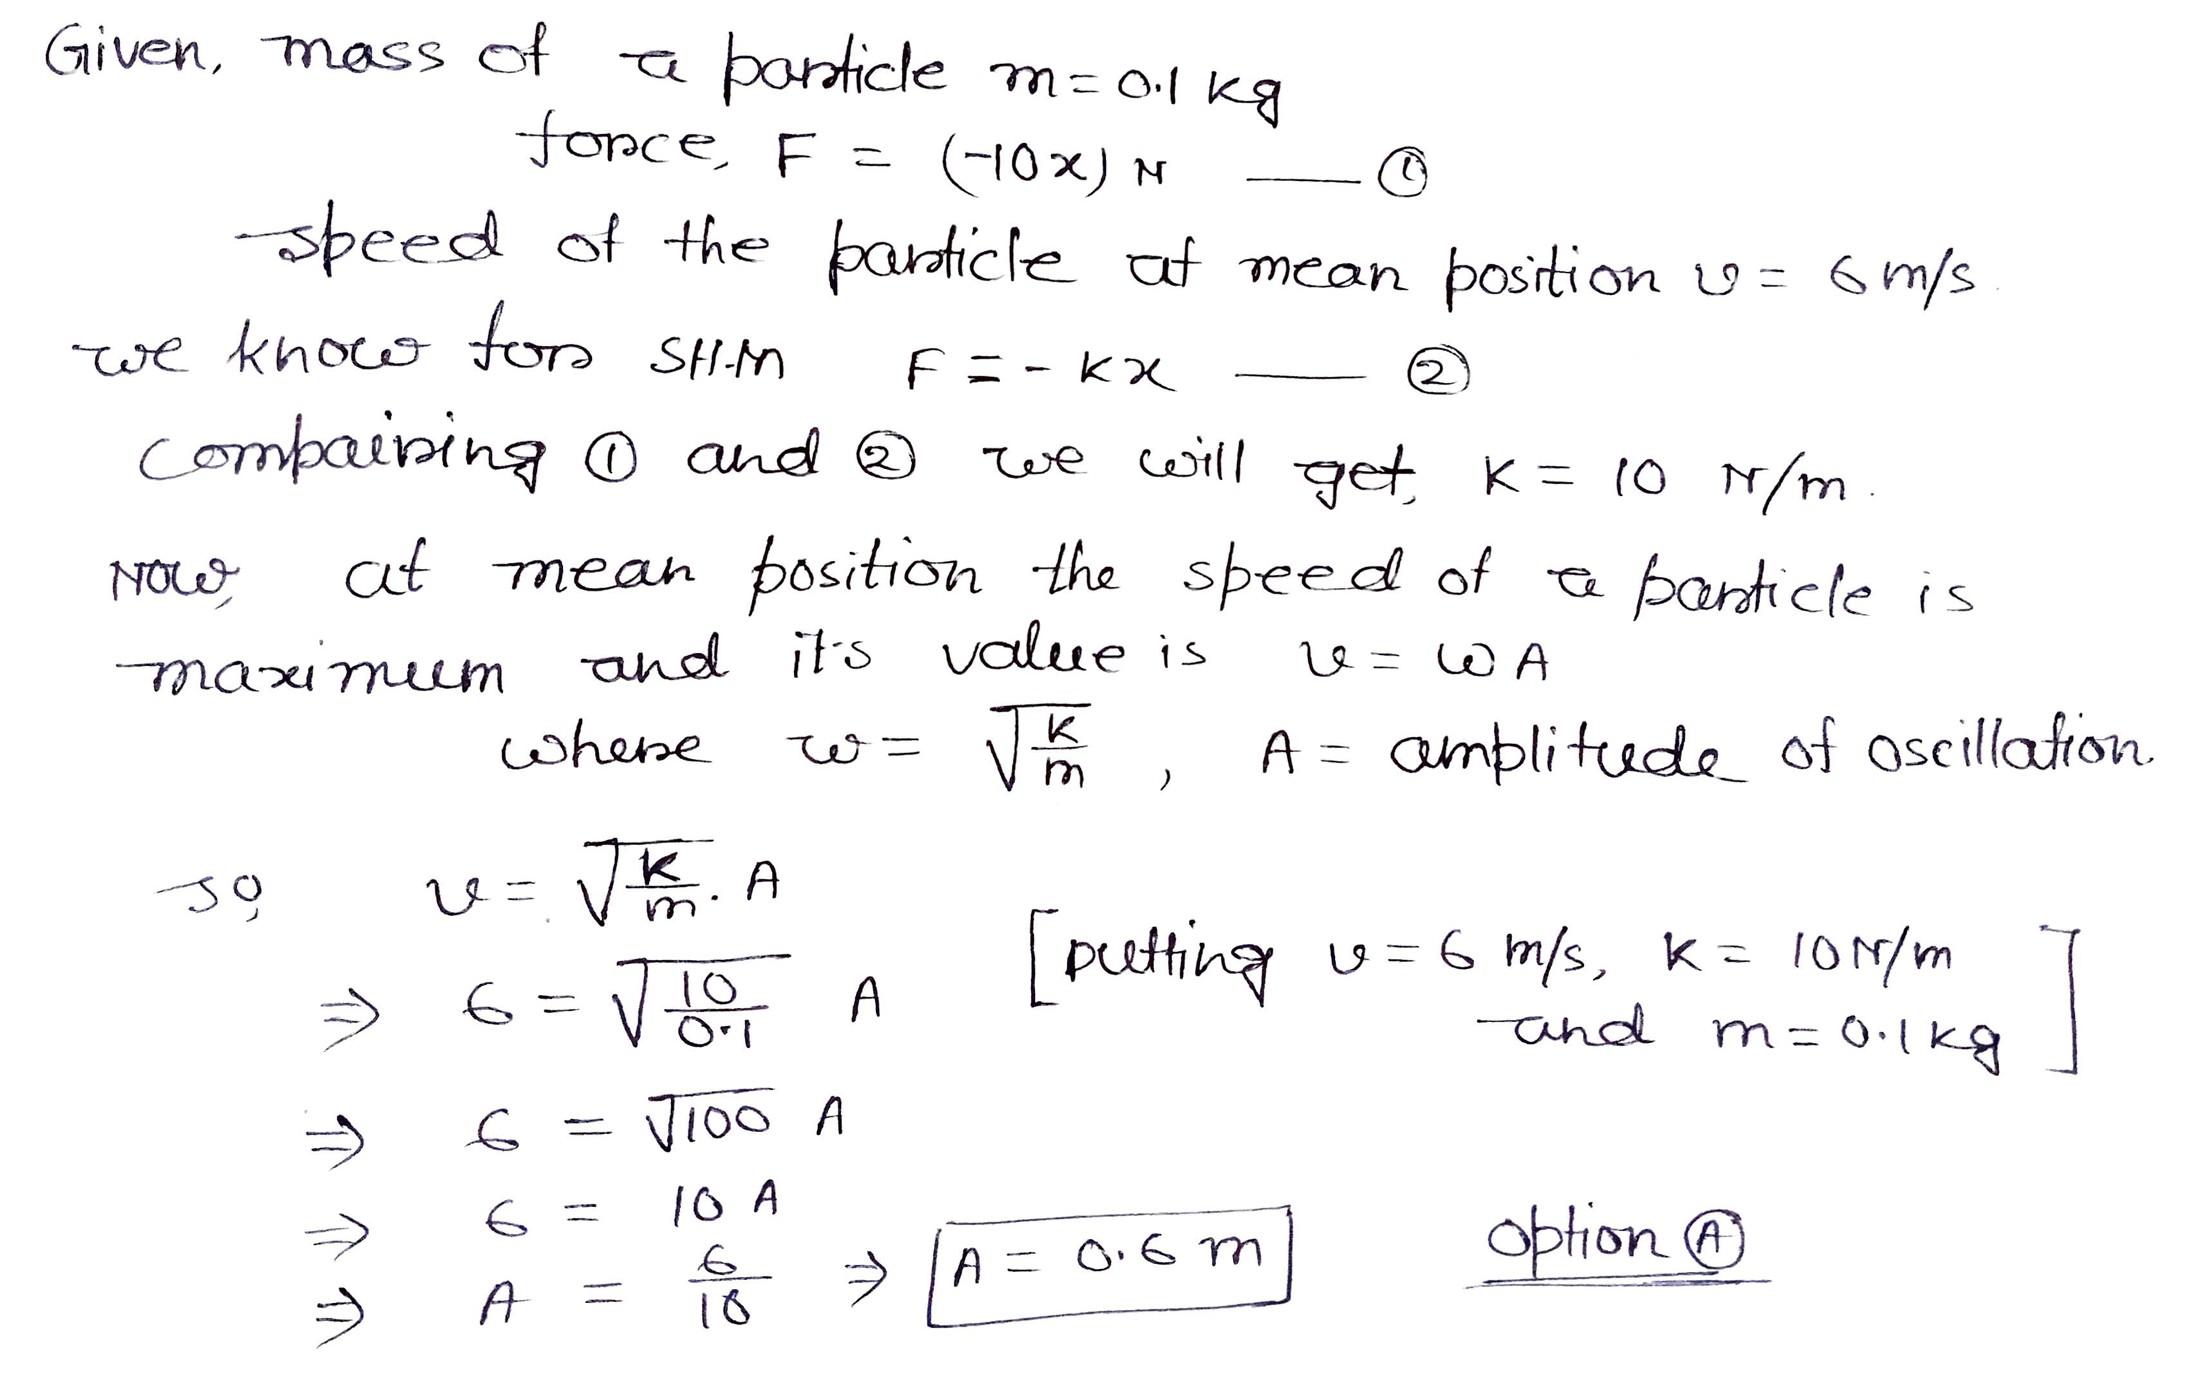 Given, mass of a particle m = 0.1 kg
force, F = (-10x) N —— ①
speed of the particle at mean position v = 6 m/s.
we know for SH.M F = - kx —— ②
compairing ① and ② we will get, K = 10 N/m.
Now, at mean position the speed of a particle is
maximum and it's value is v = ωA
where ω = √(K/m) , A = amplitude of oscillation.
so, v = √(K/m) . A
⇒ 6 = √(10/0.1) A [putting v = 6 m/s, K = 10 N/m
and m = 0.1 kg]
⇒ 6 = √100 A
⇒ 6 = 10 A
⇒ A = 6/10 ⇒ A = 0.6 m option Ⓐ